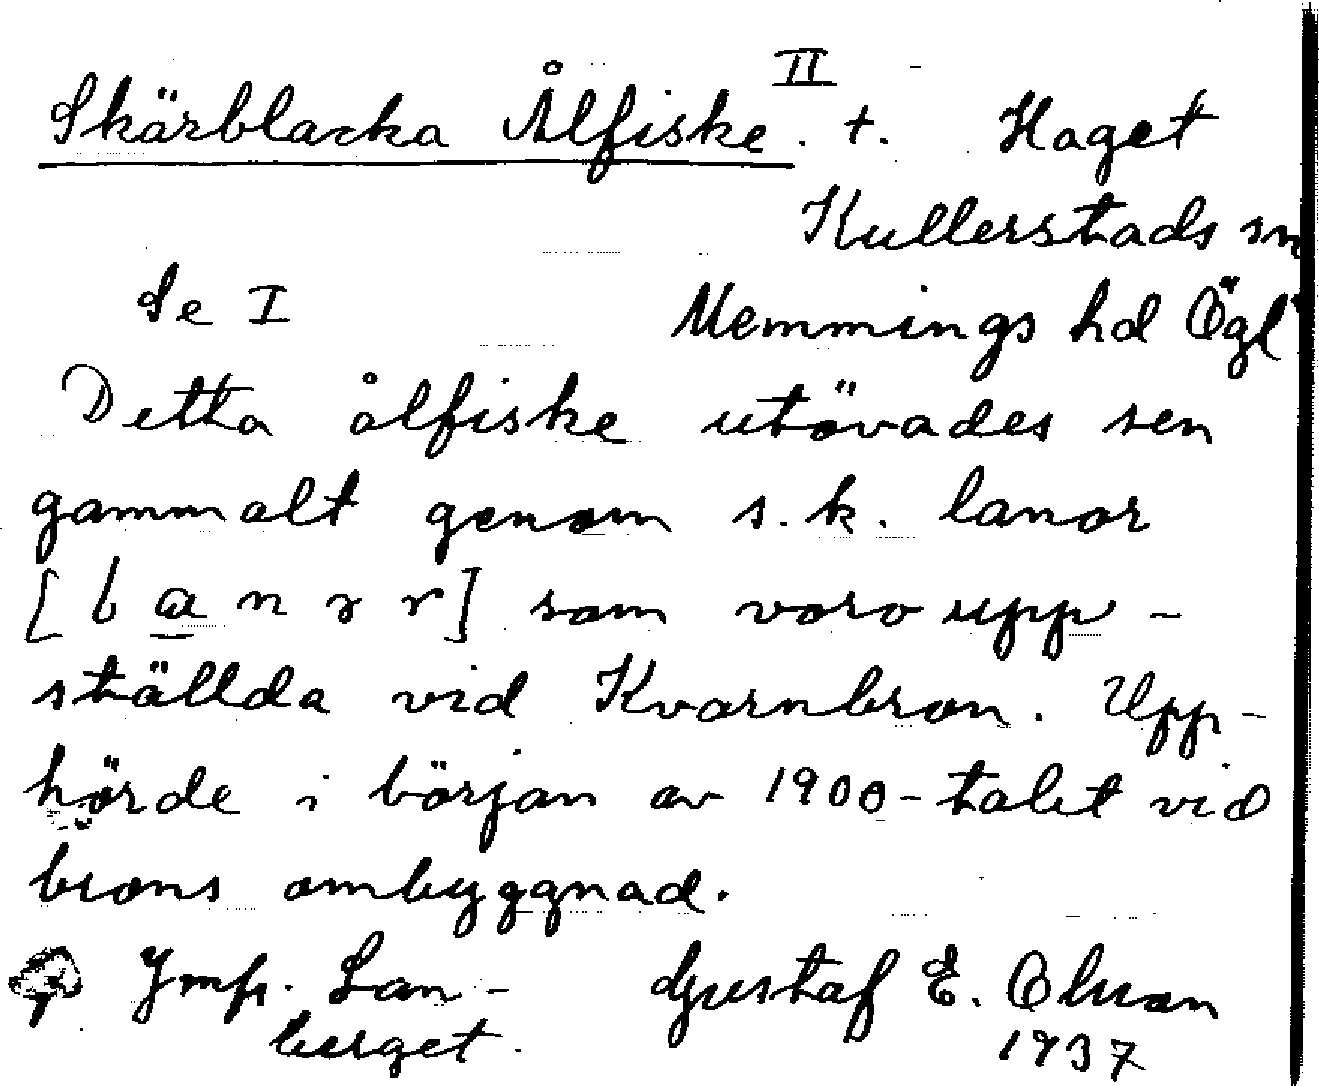 II
Skärblacka Ålfiske. t. Haget
Kullerstads sn
Se I Memmings hd Ögl
Detta ålfiske utövades sen
gammalt genom s.k. lanor
[l a n r] som voro upp-
ställda vid Kvarnbron. Upp-
hörde i början av 1900-talet vid
brons ombyggnad.
Jmfr. Lan- Gustaf E. Olsson
berget. 1937